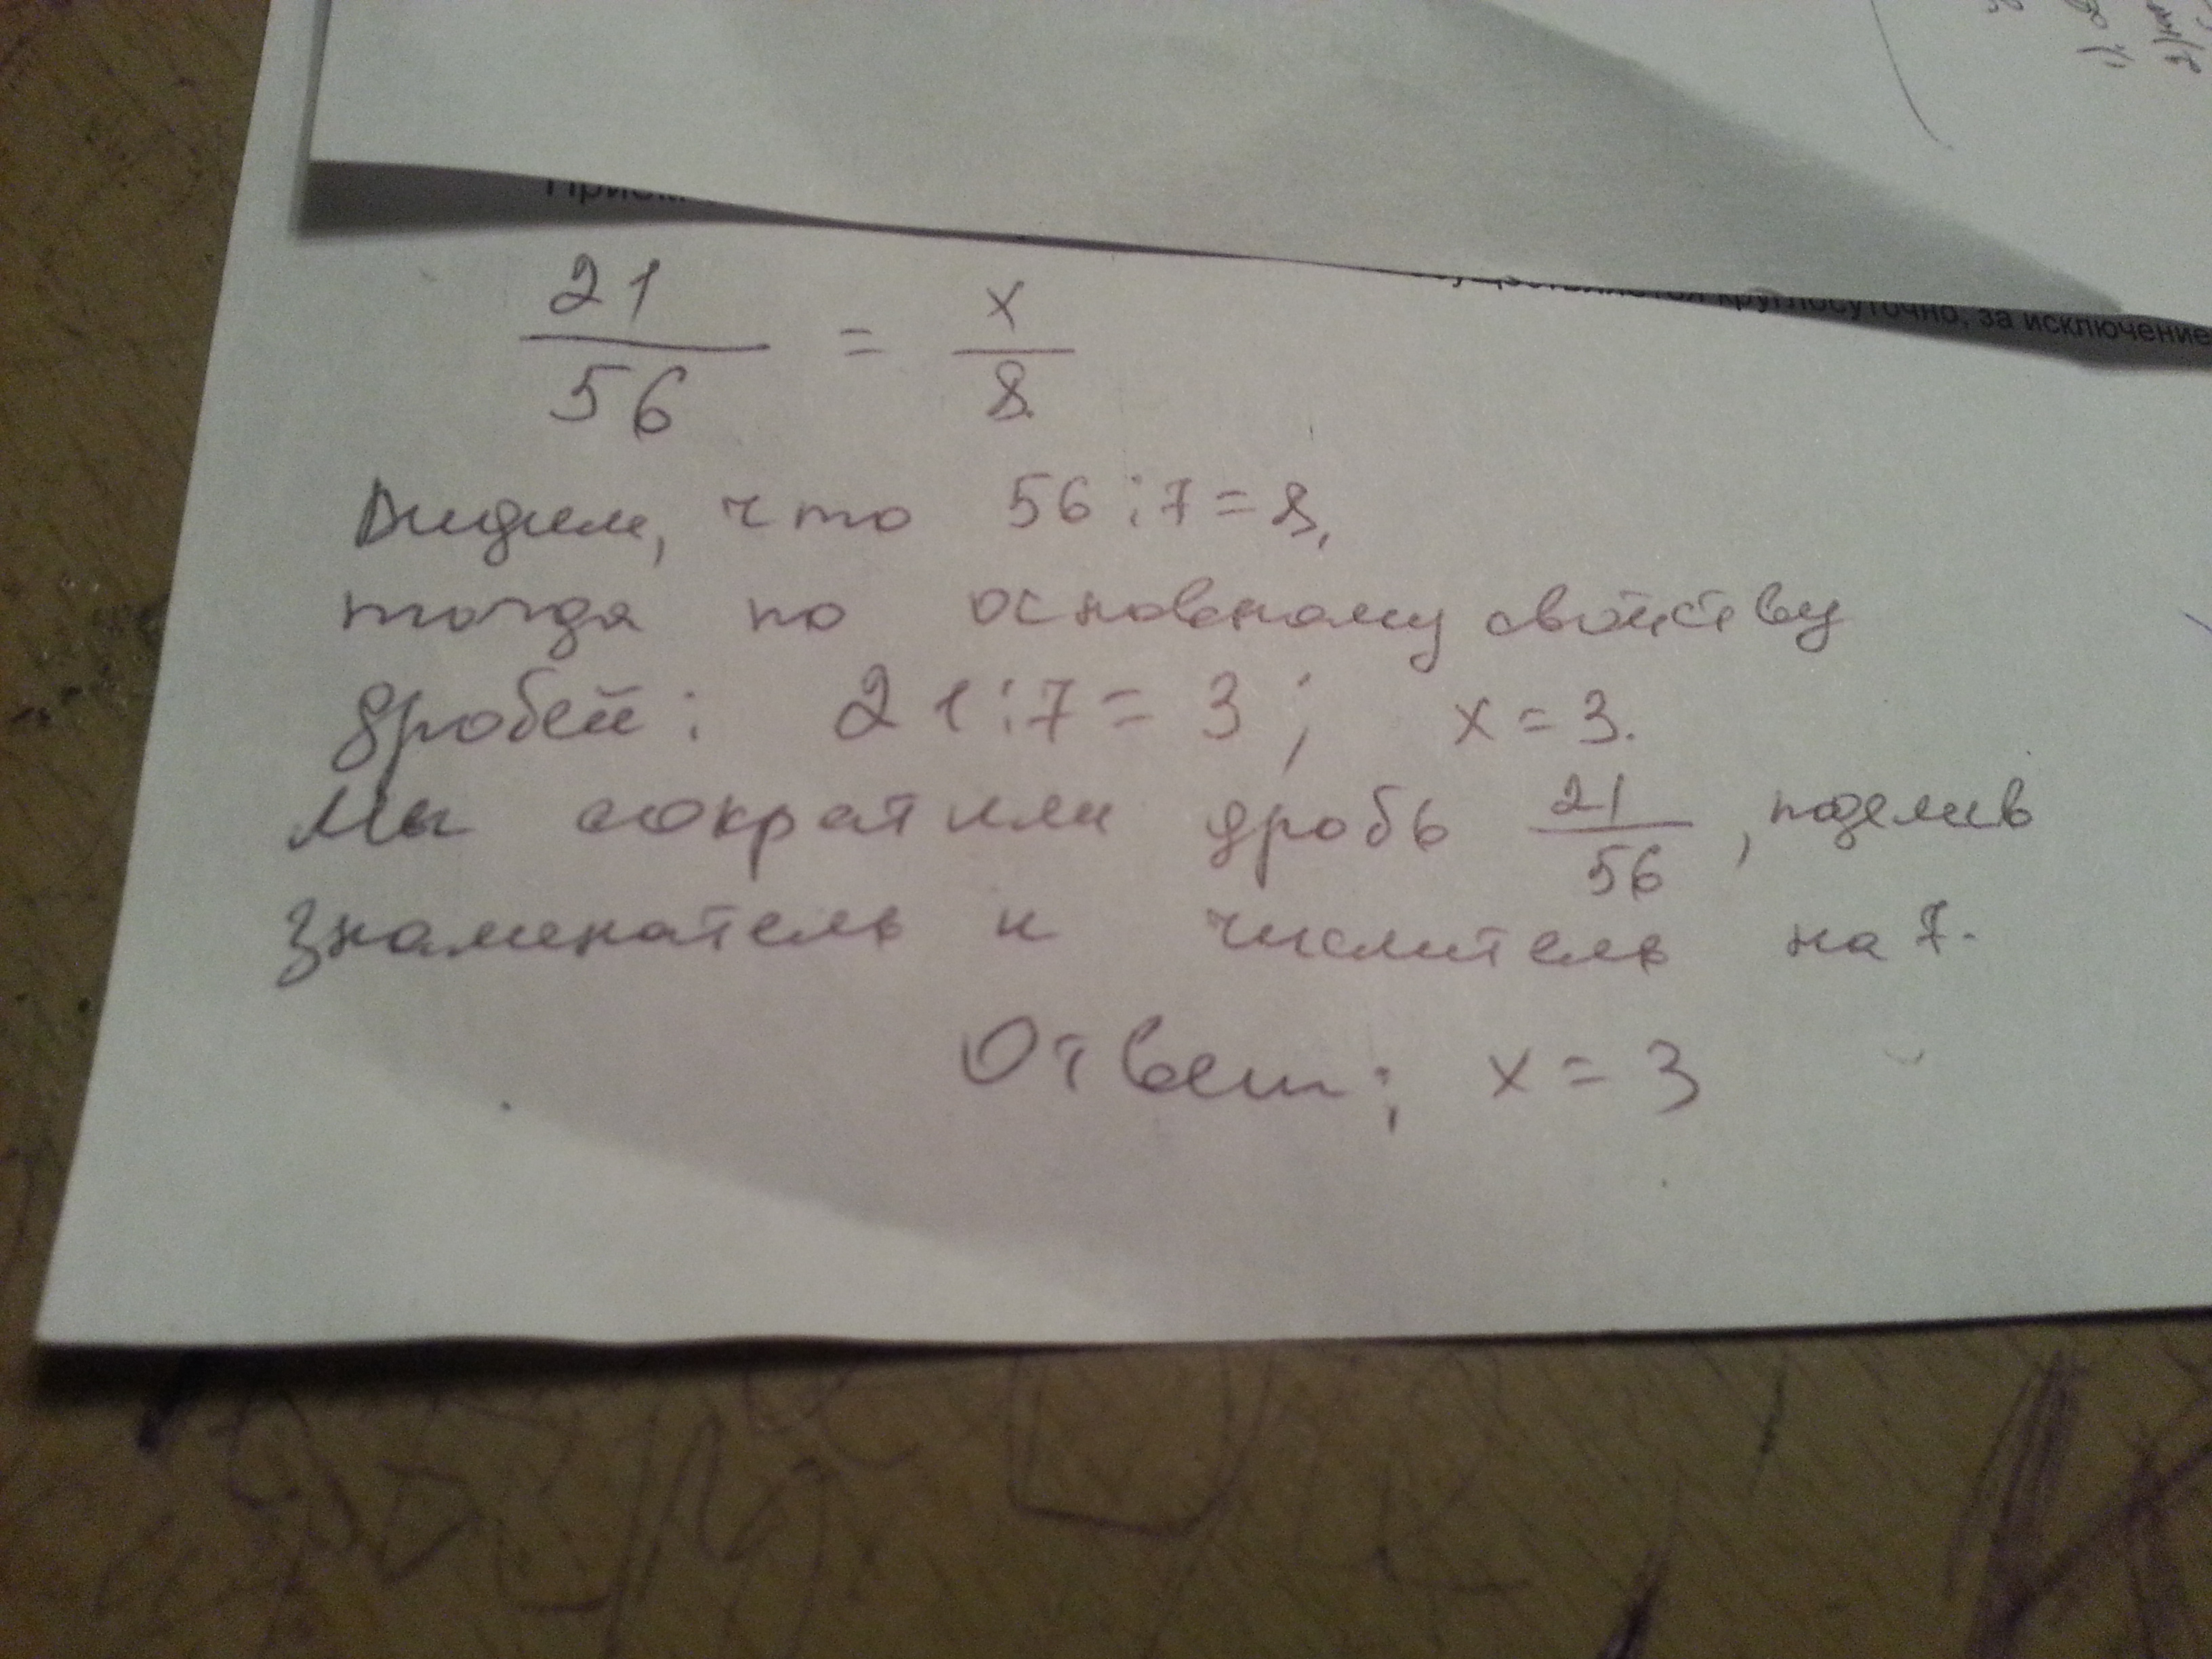 21/56 = x/8
Видим, что 56:7=8,
тогда по основному свойству
дробей: 21:7=3; x=3.
Мы сократили дробь 21/56, поделив
знаменатель и числитель на 7.
Ответ: x=3
круглосуточно, за исключение